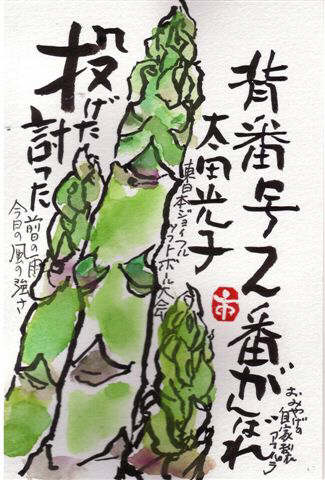 背番号2番がんばれ
太田光子
東日本ジョイフル
ソフトボール大会
投げた
討った
前日の雨
今日の風の強さ
おみやげの
自家製
アスパラ